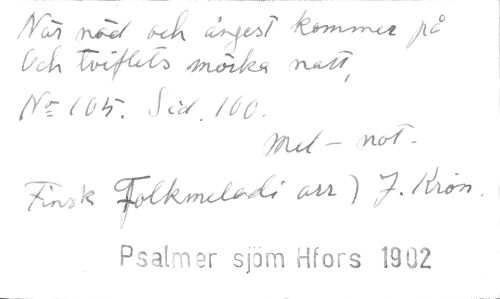 När nöd och ångest kommer på
Och tviflets mörka natt,
No 105. Sid. 100.
mel - not.
Finsk Folkmelodi arr) J. Krön.
Psalmer sjöm Hfors 1902